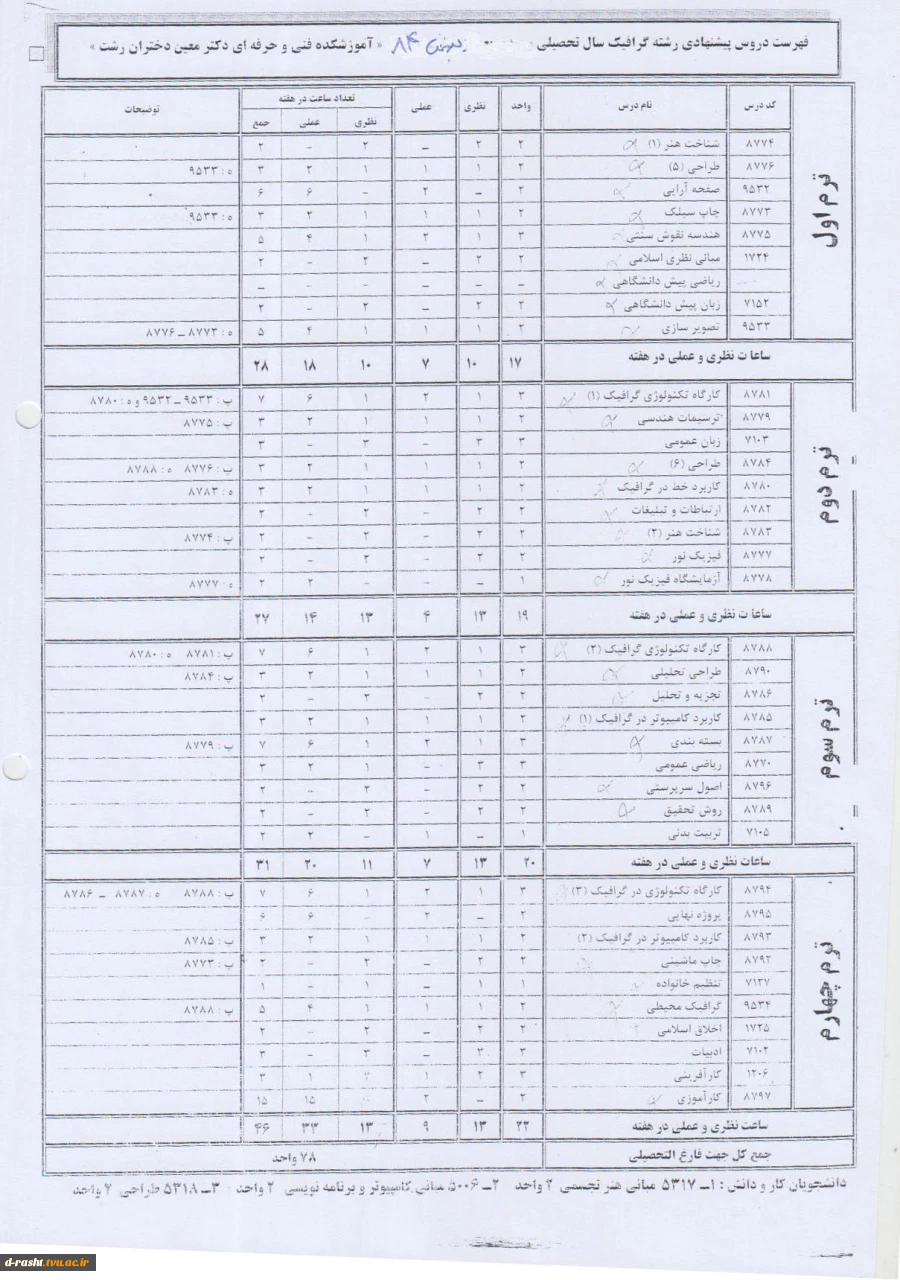 فهرست دروس پیشنهادی رشته گرافیک سال تحصیلی ۸۴ « آموزشکده فنی و حرفه ای دکتر معین دختران رشت »
کد درس نام درس واحد نظری عملی تعداد ساعت در هفته توضیحات
نظری عملی جمع
ترم اول
۸۷۷۴ شناخت هنر (۱) ۲ ۲ – ۲ – ۲
۸۷۷۶ طراحی (۵) ۲ ۱ ۱ ۱ ۲ ۳ ه : ۹۵۳۳
۹۵۳۲ صفحه آرایی ۲ – ۲ – ۶ ۶
۸۷۷۳ چاپ سیلک ۲ ۱ ۱ ۱ ۲ ۳ ه : ۹۵۳۳
۸۷۷۵ هندسه نقوش سنتی ۳ ۱ ۲ ۱ ۴ ۵
۱۷۲۴ مبانی نظری اسلامی ۲ ۲ – ۲ – ۲
ریاضی پیش دانشگاهی – – – – – –
۷۱۵۲ زبان پیش دانشگاهی ۲ ۲ – ۲ – ۲
۹۵۳۳ تصویر سازی ۲ ۱ ۱ ۱ ۴ ۵ ه : ۸۷۷۳ – ۸۷۷۶
ساعات نظری و عملی در هفته ۱۷ ۱۰ ۷ ۱۰ ۱۸ ۲۸
ترم دوم
۸۷۸۱ کارگاه تکنولوژی گرافیک (۱) ۳ ۱ ۲ ۱ ۶ ۷ پ : ۹۵۳۳ – ۹۵۳۲ و ه : ۸۷۸۰
۸۷۷۹ ترسیمات هندسی ۲ ۱ ۱ ۱ ۲ ۳ پ : ۸۷۷۵
۷۱۰۳ زبان عمومی ۳ ۳ – ۳ – ۳
۸۷۸۴ طراحی (۶) ۲ ۱ ۱ ۱ ۲ ۳ پ : ۸۷۷۶ ه : ۸۷۸۸
۸۷۸۰ کاربرد خط در گرافیک ۲ ۱ ۱ ۱ ۲ ۳ ه : ۸۷۸۳
۸۷۸۲ ارتباطات و تبلیغات ۲ ۲ – ۲ – ۲
۸۷۸۳ شناخت هنر (۲) ۲ ۲ – ۲ – ۲ پ : ۸۷۷۴
۸۷۷۷ فیزیک نور ۲ ۲ – ۲ – ۲
۸۷۷۸ آزمایشگاه فیزیک نور ۱ – – – ۲ ۲ ه : ۸۷۷۷
ساعات نظری و عملی در هفته ۱۹ ۱۳ ۴ ۱۳ ۱۴ ۲۷
ترم سوم
۸۷۸۸ کارگاه تکنولوژی گرافیک (۲) ۳ ۱ ۲ ۱ ۶ ۷ پ : ۸۷۸۱ ه : ۸۷۸۰
۸۷۹۰ طراحی تحلیلی ۲ ۱ ۱ ۱ ۲ ۳ پ : ۸۷۸۴
۸۷۸۶ تجزیه و تحلیل ۲ ۲ – ۲ – ۲
۸۷۸۵ کاربرد کامپیوتر در گرافیک (۱) ۲ ۱ ۱ ۱ ۲ ۳
۸۷۸۷ بسته بندی ۳ ۱ ۲ ۱ ۶ ۷ پ : ۸۷۷۹
۸۷۷۰ ریاضی عمومی ۳ ۳ – ۱ ۲ ۳
۸۷۹۶ اصول سرپرستی ۲ ۲ – ۲ – ۲
۸۷۸۹ روش تحقیق ۲ ۲ – ۲ – ۲
۷۱۰۵ تربیت بدنی ۱ – ۱ – ۲ ۲
ساعات نظری و عملی در هفته ۲۰ ۱۳ ۷ ۱۱ ۲۰ ۳۱
ترم چهارم
۸۷۹۴ کارگاه تکنولوژی در گرافیک (۳) ۳ ۱ ۲ ۱ ۶ ۷ پ : ۸۷۸۸ ه : ۸۷۸۷ – ۸۷۸۶
۸۷۹۵ پروژه نهایی ۲ – ۲ – ۶ ۶
۸۷۹۳ کاربرد کامپیوتر در گرافیک (۲) ۲ ۱ ۱ ۱ ۲ ۳ پ : ۸۷۸۵
۸۷۹۲ چاپ ماشینی ۲ ۲ – ۲ – ۲ پ : ۸۷۷۳
۷۱۲۷ تنظیم خانواده ۱ ۱ – ۱ – ۱
۹۵۳۴ گرافیک محیطی ۲ ۱ ۱ ۱ ۴ ۵ پ : ۸۷۸۸
۱۷۲۵ اخلاق اسلامی ۲ ۲ – ۲ – ۲
۷۱۰۲ ادبیات ۳ ۳ – ۳ – ۳
۱۲۰۶ کارآفرینی ۳ ۲ ۱ ۲ ۱ ۳
۸۷۹۷ کارآموزی ۲ – ۲ ۱۵ ۱۵
ساعت نظری و عملی در هفته ۲۲ ۱۳ ۹ ۱۳ ۳۳ ۴۶
جمع کل جهت فارغ التحصیلی ۷۸ واحد
دانشجویان کار و دانش : ۱– ۵۳۱۷ مبانی هنر تجسمی ۲ واحد ۲– ۵۰۰۶ مبانی کامپیوتر و برنامه نویسی ۲ واحد ۳– ۵۳۱۸ طراحی ۲ واحد
d-rasht.tvu.ac.ir